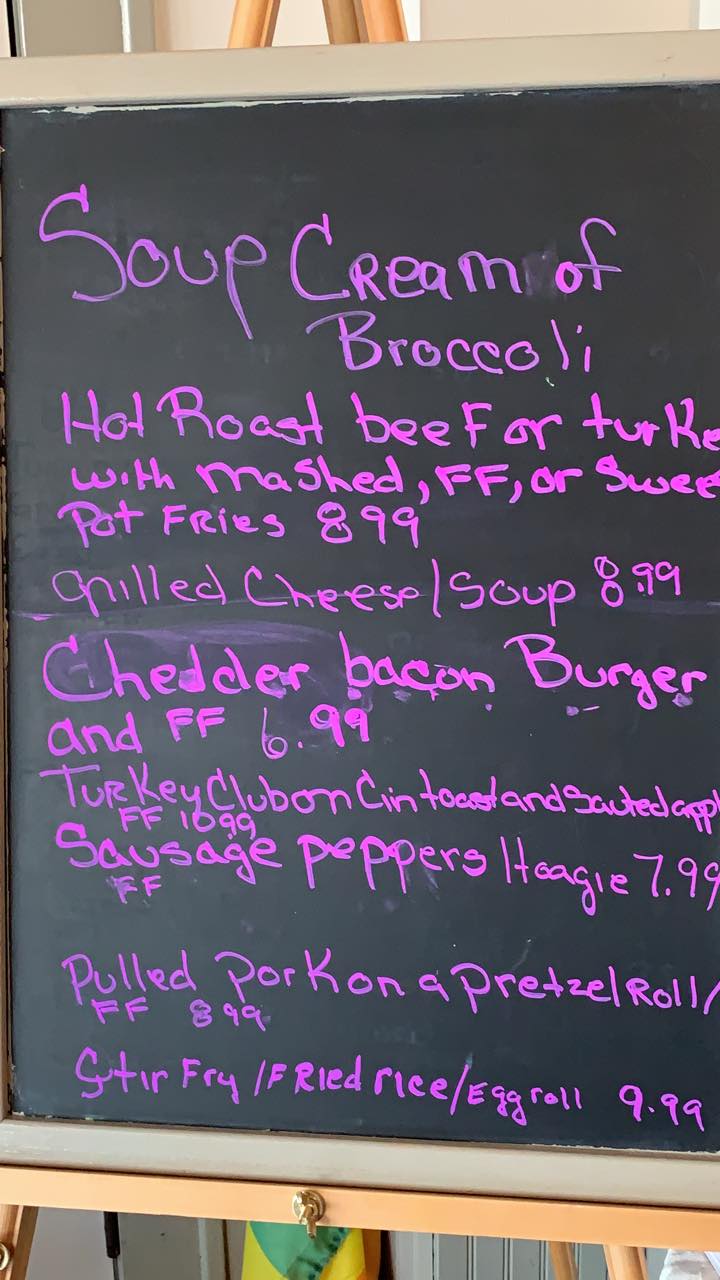 Soup Cream of
Broccoli
Hot Roast beeF or turke
with mashed, FF, or Swee
Pot Fries 899
Grilled Cheese/Soup 8.99
Chedder bacon Burger
and FF 6.99
Turkey Club on Cin toast and Sauted appl
FF 1099
Sausage peppers Hoagie 7.99
FF
Pulled Pork on a Pretzel Roll/
FF 899
Stir Fry/Fried rice/Egg roll 9.99